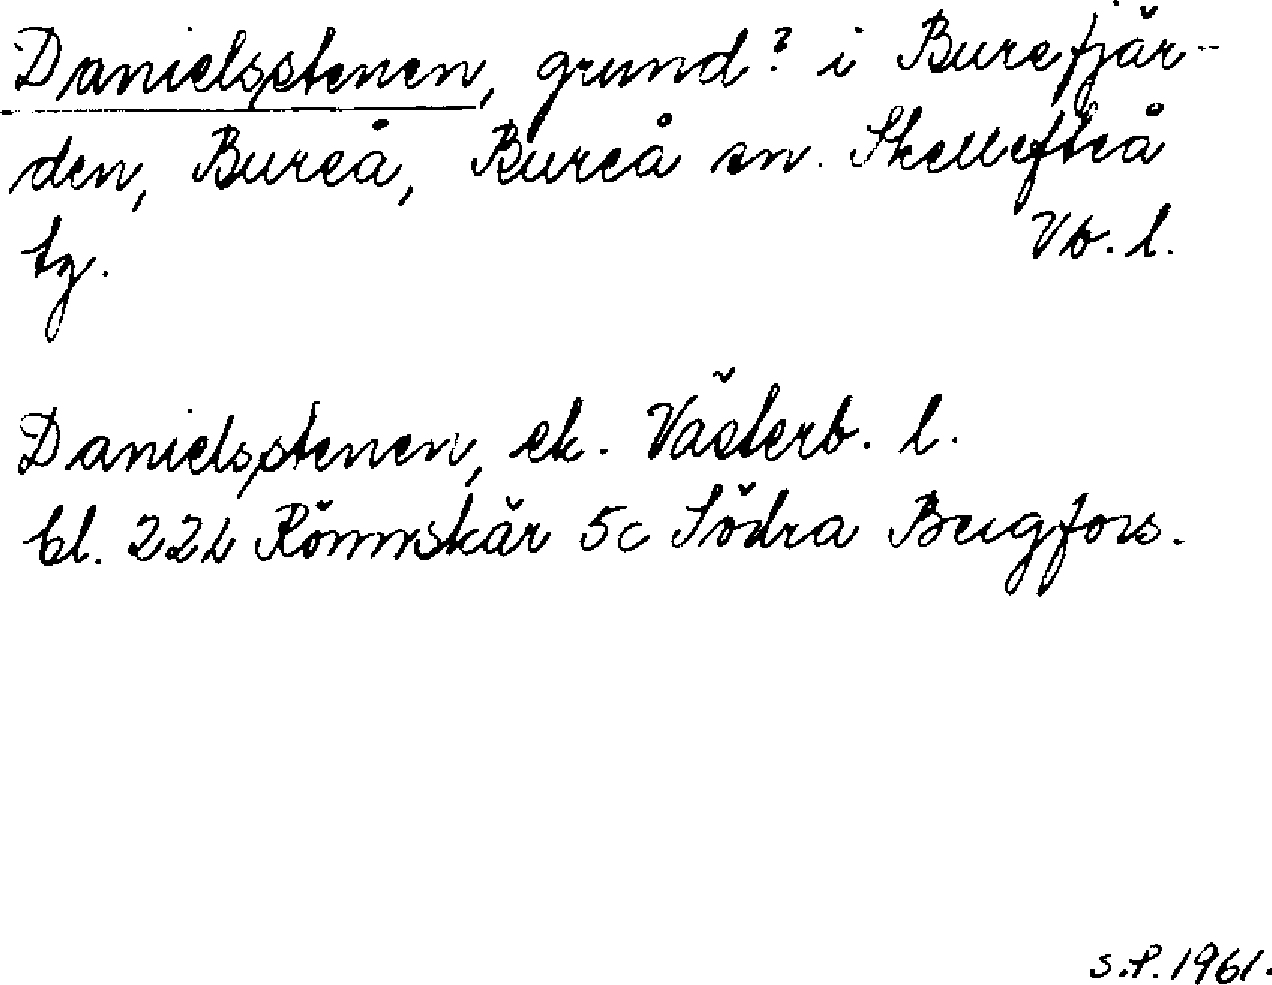 Danielsstenen, grund? i Burefjär-
den, Bureå, Bureå sn. Skellefteå
tg. Vb. l.
Danielsstenen, ek. Västerb. l.
bl. 22L Rönnskär 5c Södra Bergfors.
S.P. 1961.